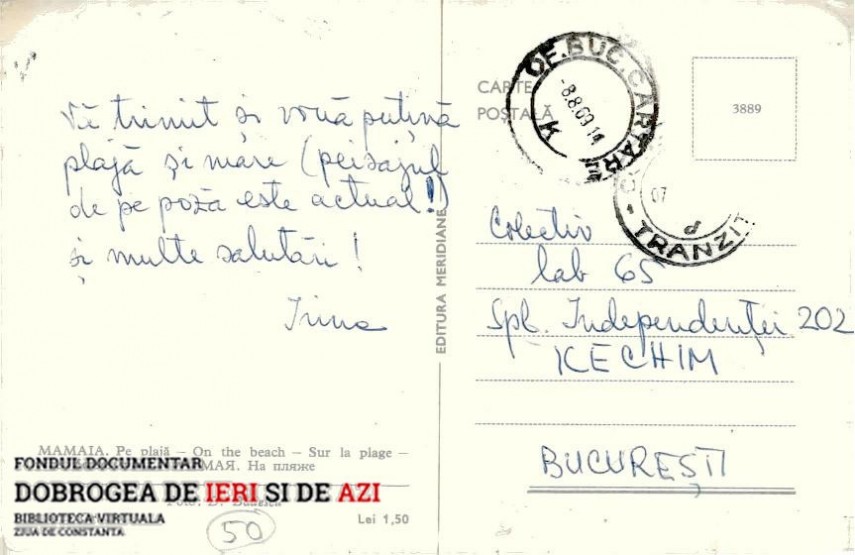 Vă trimit și vouă puțină
plajă și mare (peisajul
de pe poză este actual!)
și multe salutări!
Irina
EDITURA MERIDIANE
CARTE
POȘTALĂ
OF.BUC.CARTARE
-8.8.69.14
K
3889
07
d
- TRANZIT
Colectiv
lab 65
Spl. Independenței 202
ICECHIM
BUCUREȘTI
MAMAIA. Pe plajă – On the beach – Sur la plage –
МАЯ. На пляже
Lei 1,50
50
FONDUL DOCUMENTAR
DOBROGEA DE IERI SI DE AZI
BIBLIOTECA VIRTUALA
ZIUA DE CONSTANTA